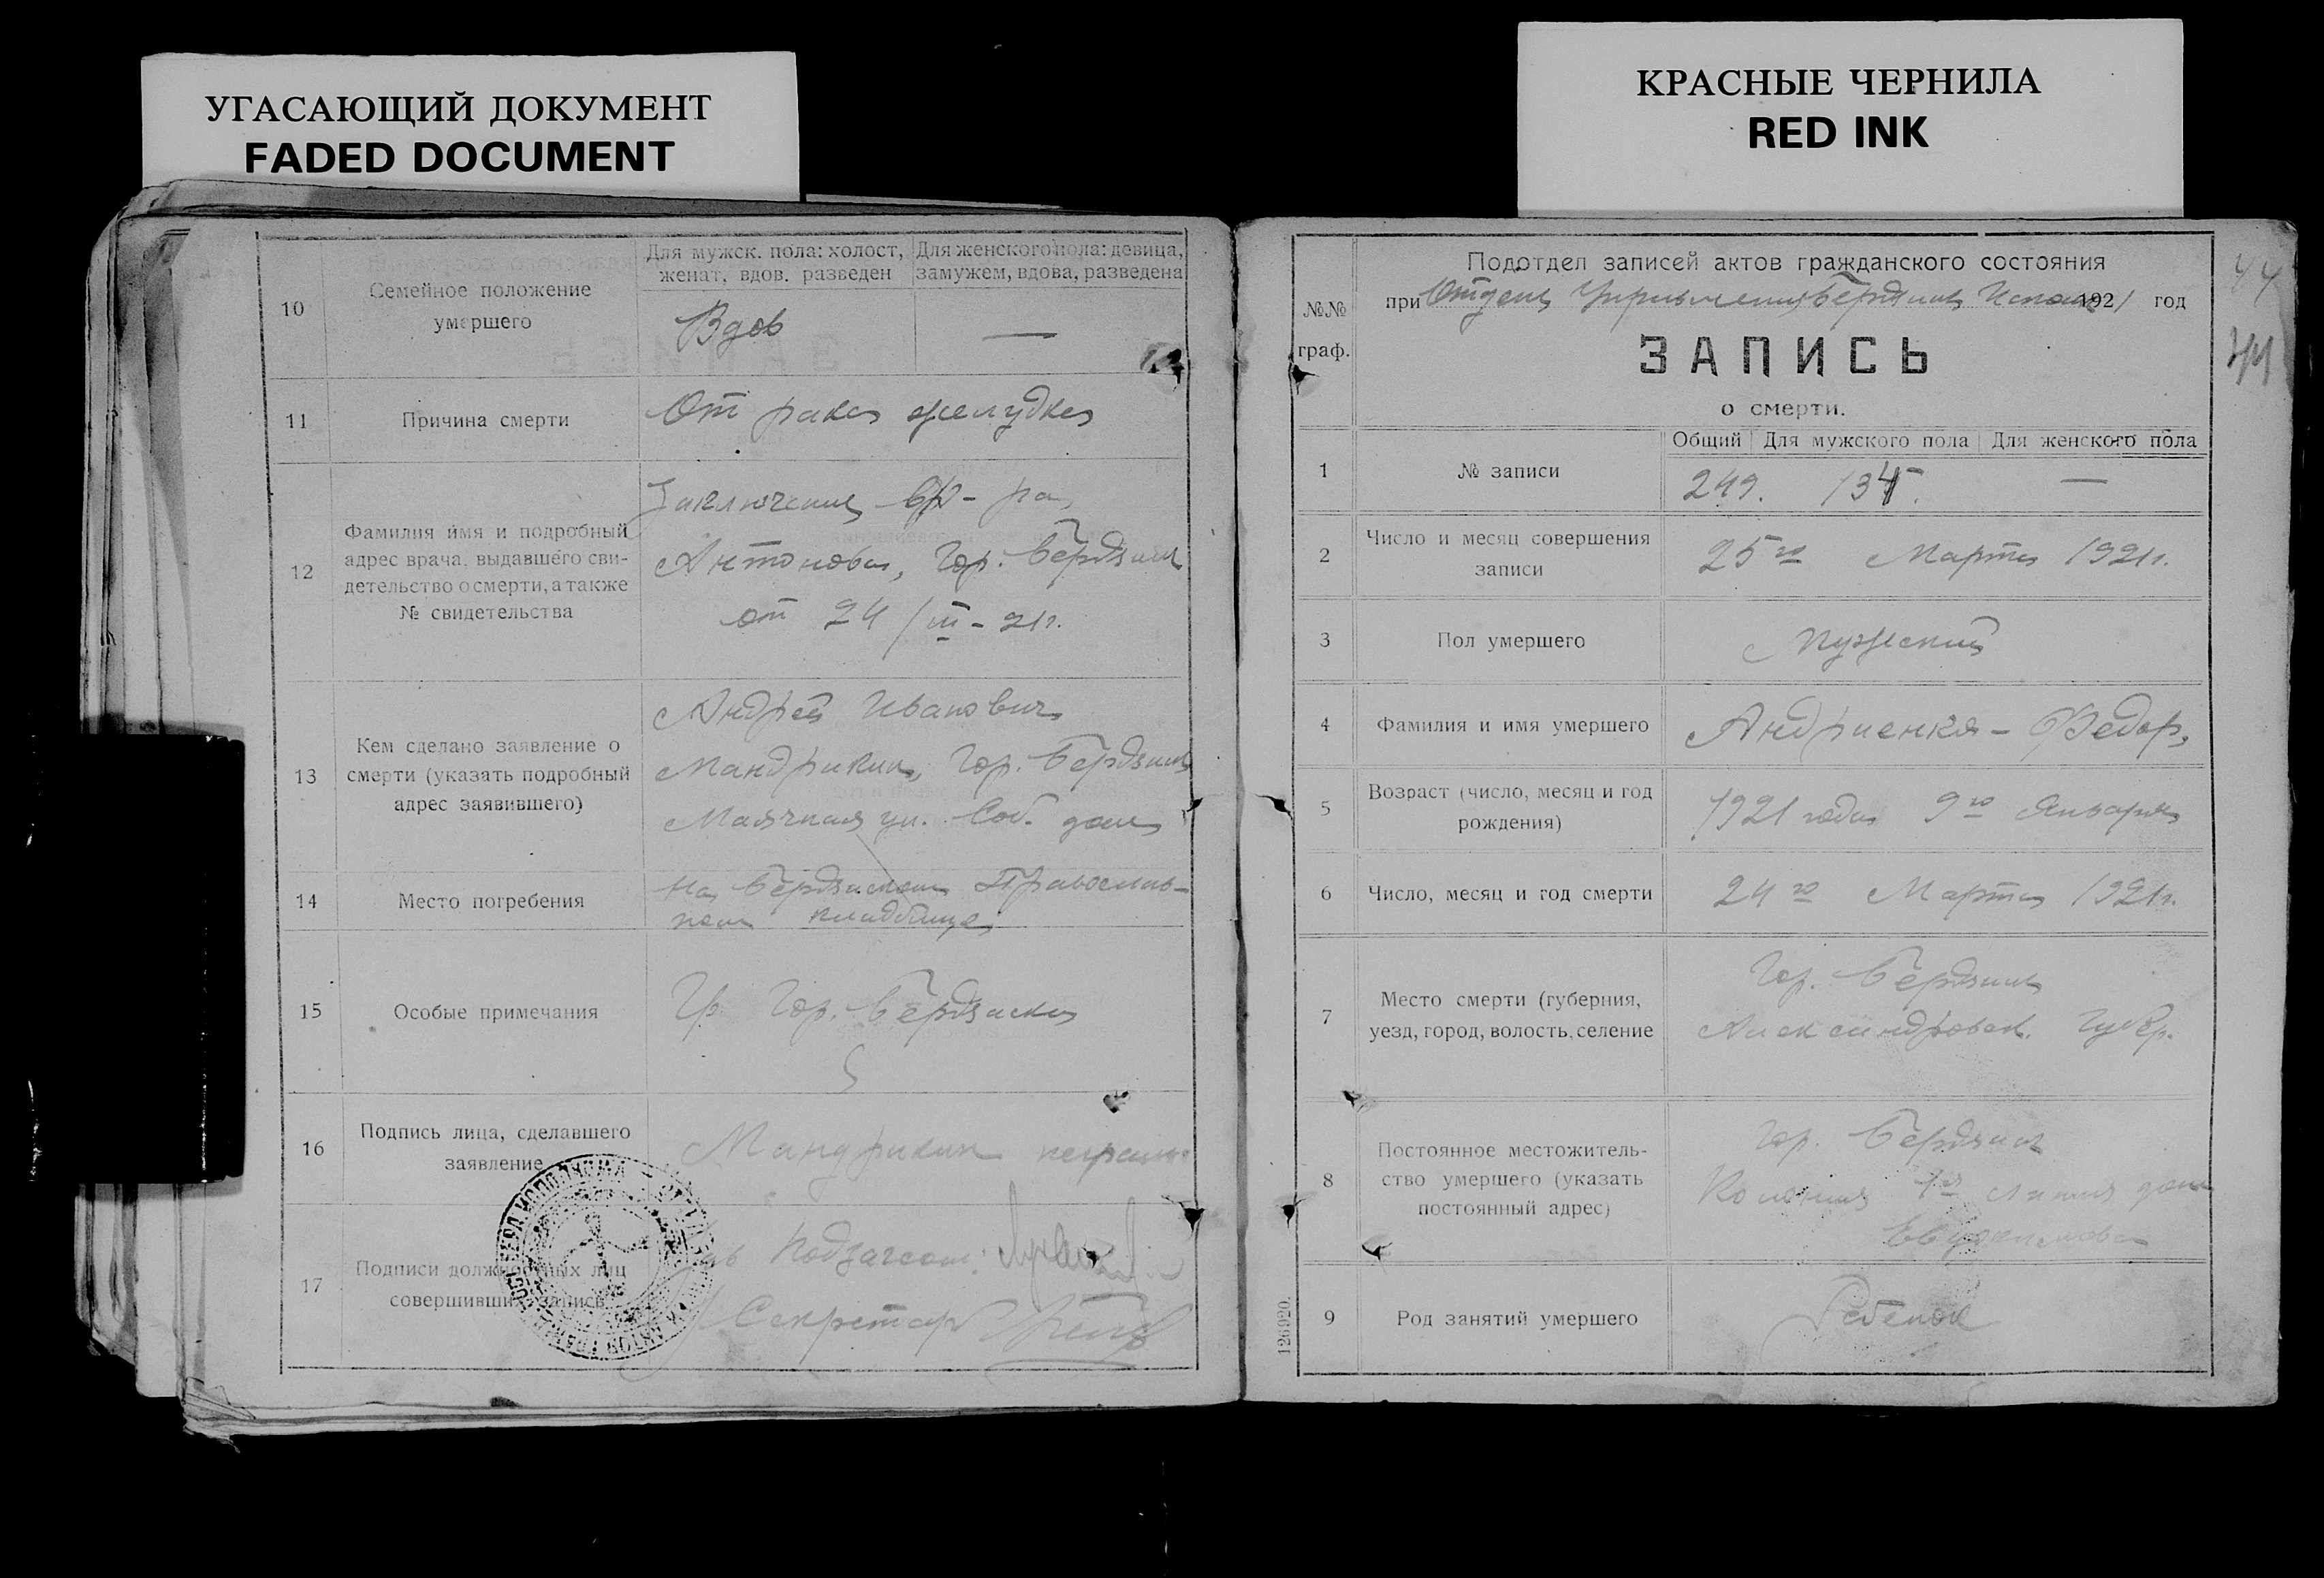 УГАСАЮЩИЙ ДОКУМЕНТ
FADED DOCUMENT
КРАСНЫЕ ЧЕРНИЛА
RED INK
10
Семейное положение
умершего
Для мужск. пола: холост,
женат, вдов. разведен
Для женского пола: девица,
замужем, вдова, разведена
Вдов
—
11
Причина смерти
От рака желудка
12
Фамилия имя и подробный
адрес врача, выдавшего сви-
детельство о смерти, а также
№ свидетельства
Заключение вр-ра
Антонова, Гор. Бердянск
от 24/III-21г.
13
Кем сделано заявление о
смерти (указать подробный
адрес заявившего)
Андрей Иванович
Мандрыкин, Гор. Бердянск
Маячная ул. Соб. дом
14
Место погребения
На Бердянском Православ-
ном кладбище
15
Особые примечания
Гр. Гор. Бердянска
16
Подпись лица, сделавшего
заявление
Мандрыкин неграм.
17
Подписи должностных лиц
совершивших запись
Секретар
44
№№
граф.
Подотдел записей актов гражданского состояния
при Отделе Управления Бердянск Исполк 1921 год
ЗАПИСЬ
о смерти.
1
№ записи
Общий
Для мужского пола
Для женского пола
249.
134.
—
2
Число и месяц совершения
записи
25го Марта 1921г.
3
Пол умершего
Мужеский
4
Фамилия и имя умершего
Андриенко - Федор,
5
Возраст (число, месяц и год
рождения)
1921 года 9го Января
6
Число, месяц и год смерти
24го Марта 1921г.
7
Место смерти (губерния,
уезд, город, волость, селение
Гор. Бердянск
Александровск. Губер.
8
Постоянное местожитель-
ство умершего (указать
постоянный адрес)
Гор. Бердянск
Колония 1я линия дом
Евдокимова
9
Род занятий умершего
Ребенок
126920.